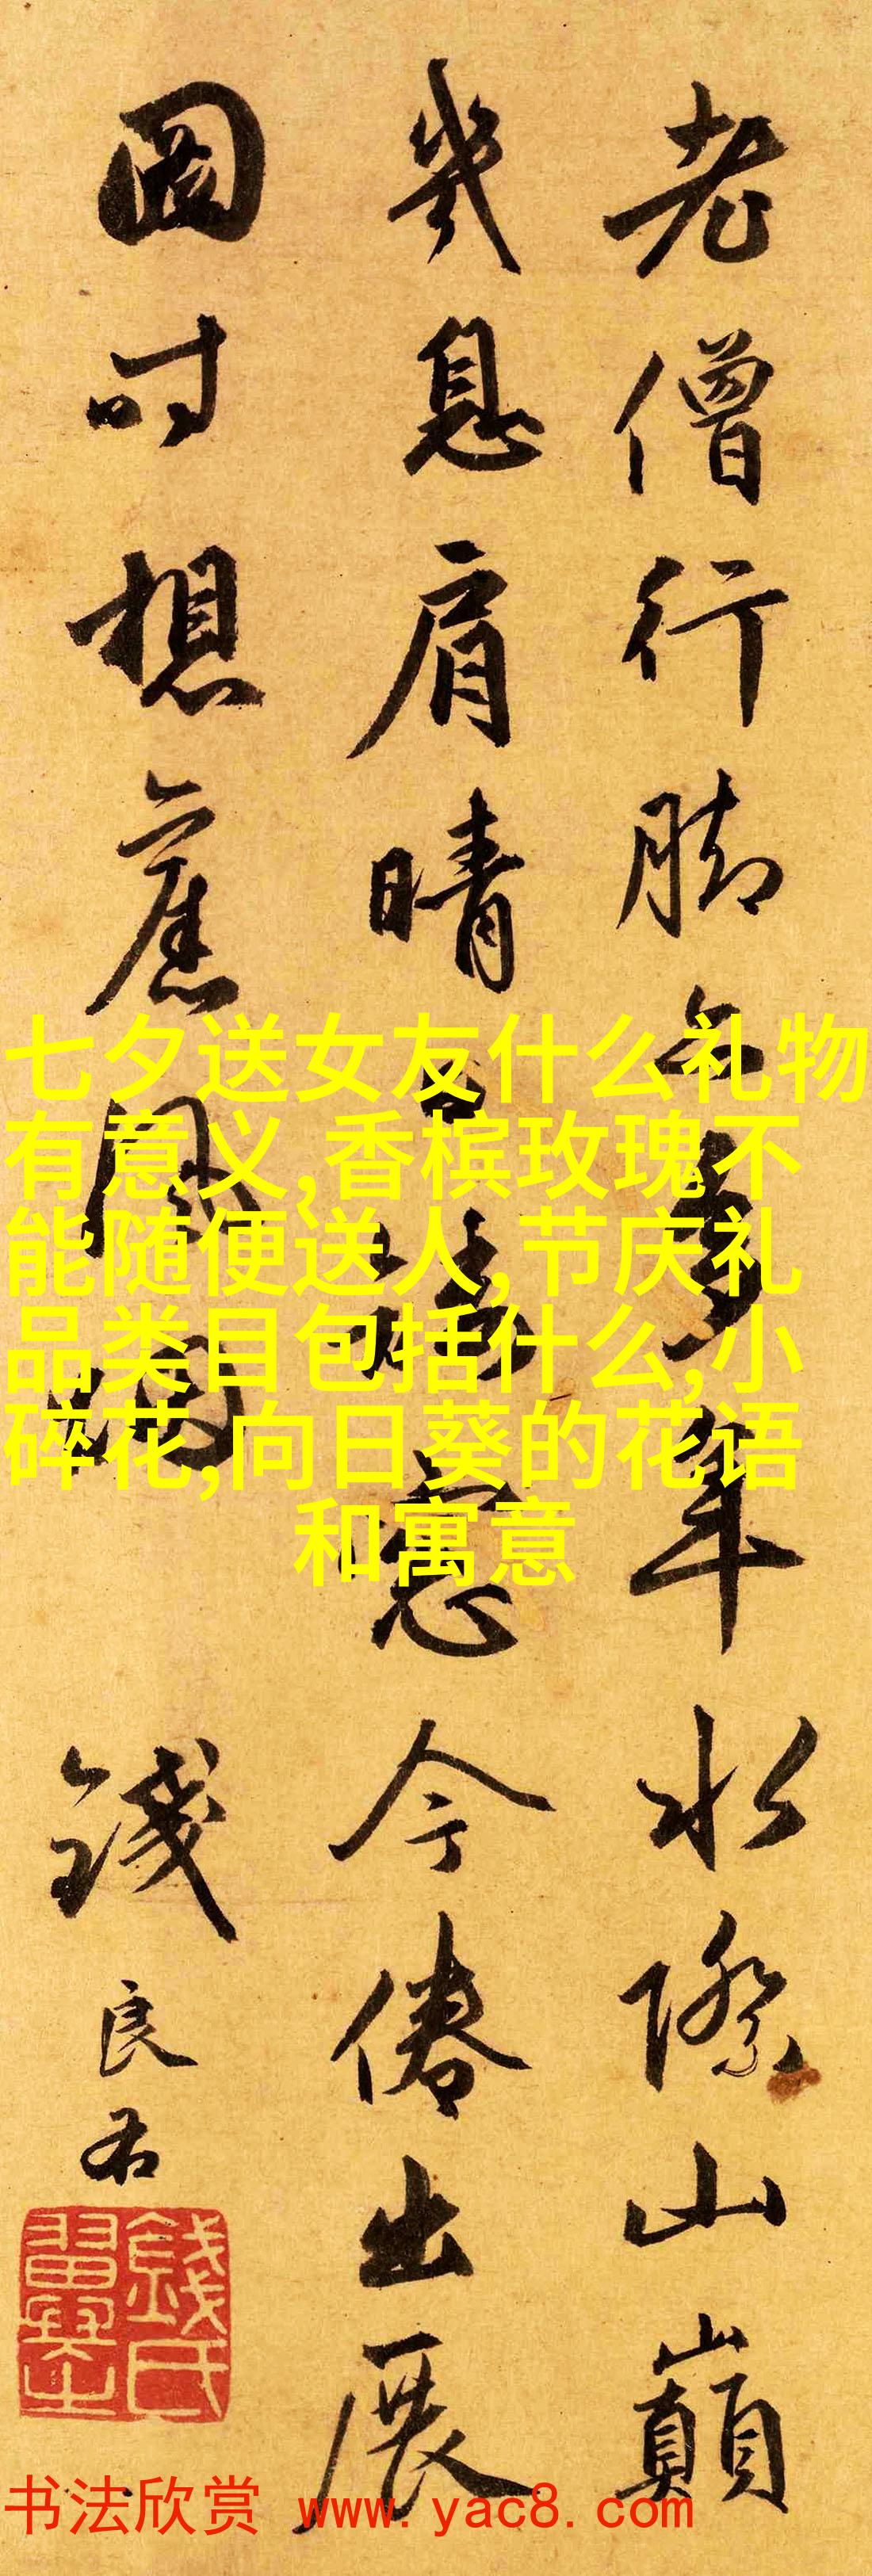 老僧行脚知多年水際山巔
幾息肩晴日晴窓今倦出展
圖時想舊風烟
錢良右
七夕送女友什么礼物
有意义,香槟玫瑰不
能随便送人,节庆礼
品类目包括什么,小
碎花,向日葵的花语
和寓意
书法欣赏 www.yac8.com